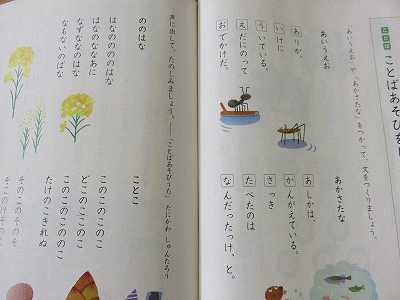 ことば
ことばあそびを
「あいうえお」や「あかさたな」をつかって、文をつくりましょう。
あいうえお
ありが、
いけに
ういている。
えだにのって
おでかけだ。
あかさたな
あしかは、
かんがえている。
さっき
たべたのは
なんだったっけ、と。
声に出して、たのしみましょう。——「ことばあそびうた」たにかわ しゅんたろう
ののはな
はなののののはな
はなのななあに
なずななのはな
なもないのばな
ことこ
このこのこのこ
どこのこのこ
このこのこののこ
たけのこきれぬ
そのこのそのそ
そこのけそのこ